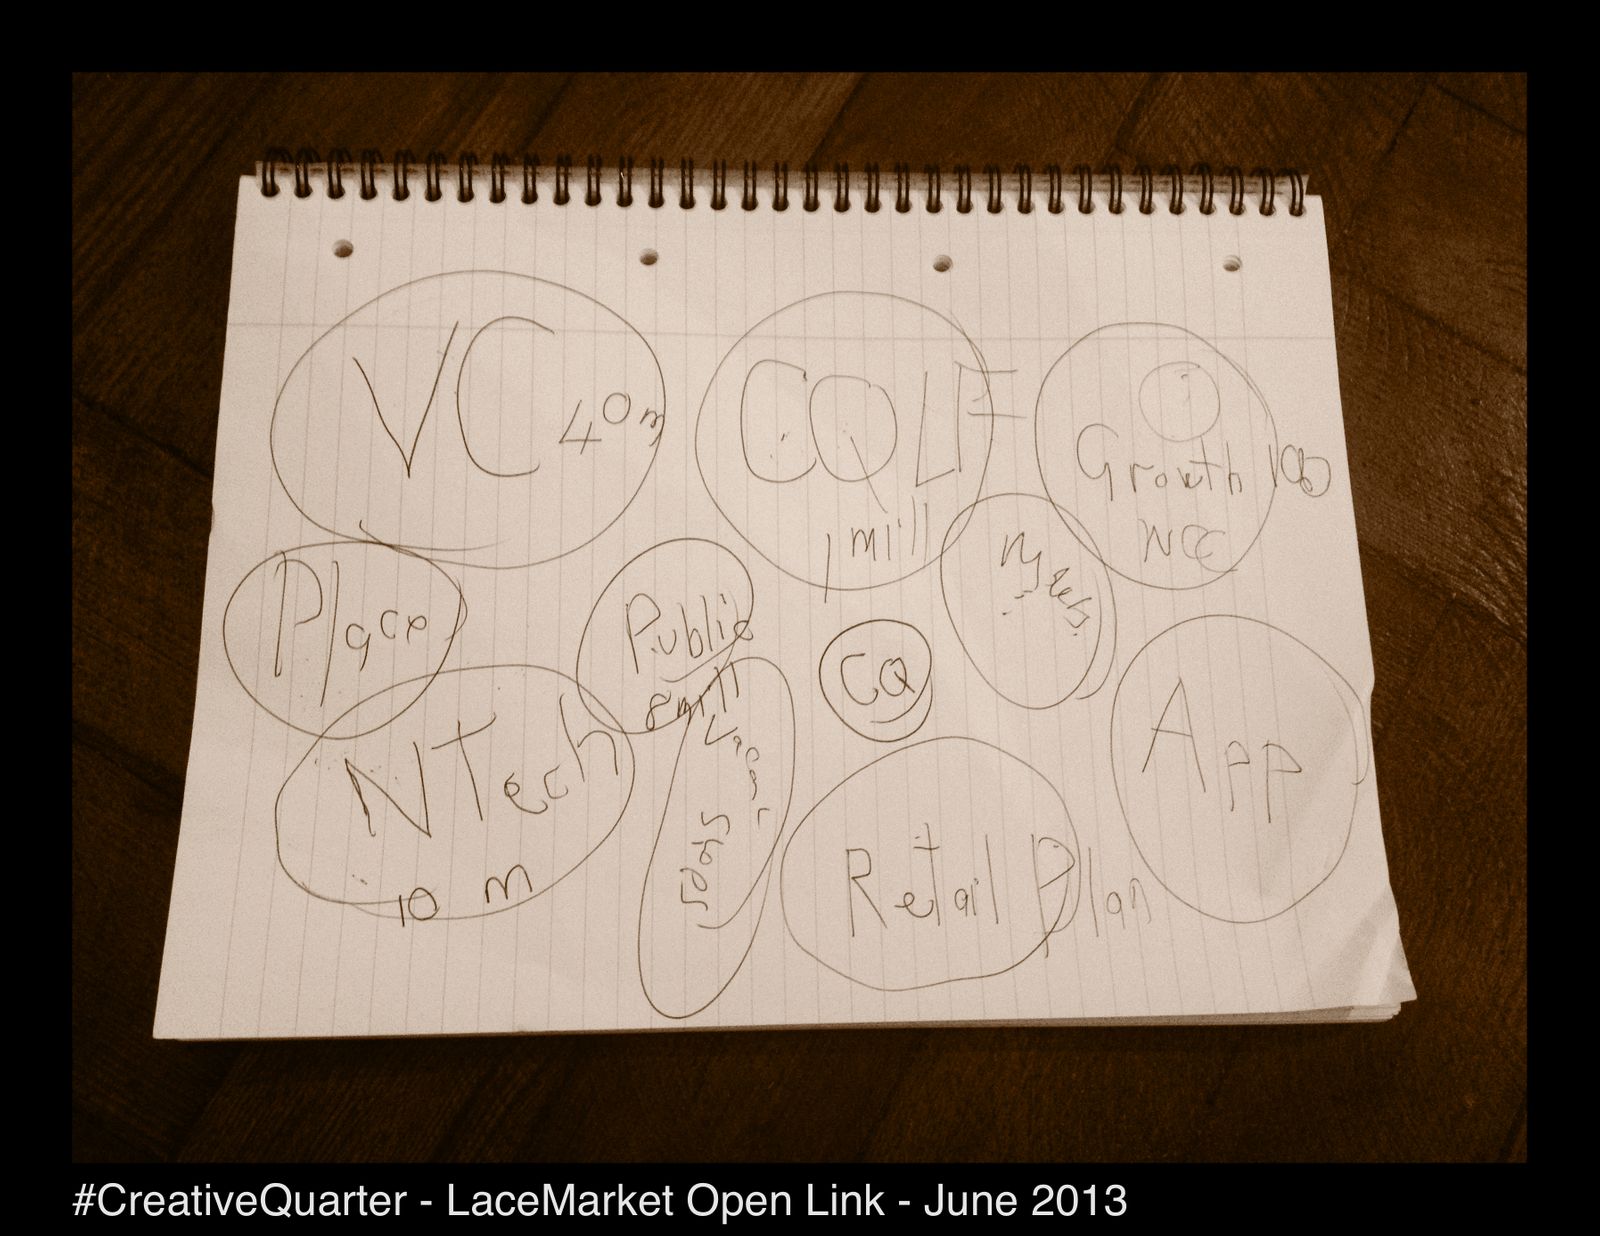 VC 40m
CQLF
1 mill
Growth 100
NCC
Place
Public
8 mill
CQ
App
NTech
10 m
Vacant
Shops
Retail Plan
#CreativeQuarter - LaceMarket Open Link - June 2013